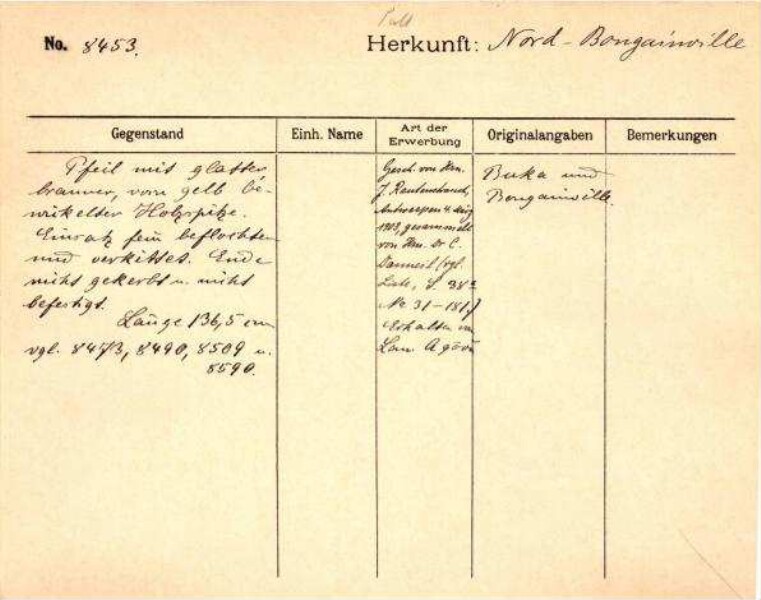 No. 8453.
Herkunft: Nord-Bougainville
Gegenstand
Einh. Name
Art der
Erwerbung
Originalangaben
Bemerkungen
Pfeil mit glatter,
brauner, vorn gelb be-
wickelter Holzspitze.
Einsatz fein beflochten
und verkittet. Ende
nicht gekerbt u. nicht
befestigt.
Länge 136,5 cm
vgl. 8473, 8490, 8509 u.
8590.
Gesch. von Hrn.
J. Rautenstrauch,
Antwerpen 4. März
1903, gesammelt
von Hrn. Dr C.
(vgl.
Liste, S. 38
No 31-181)
Erhalten von
Buka und
Bougainville.